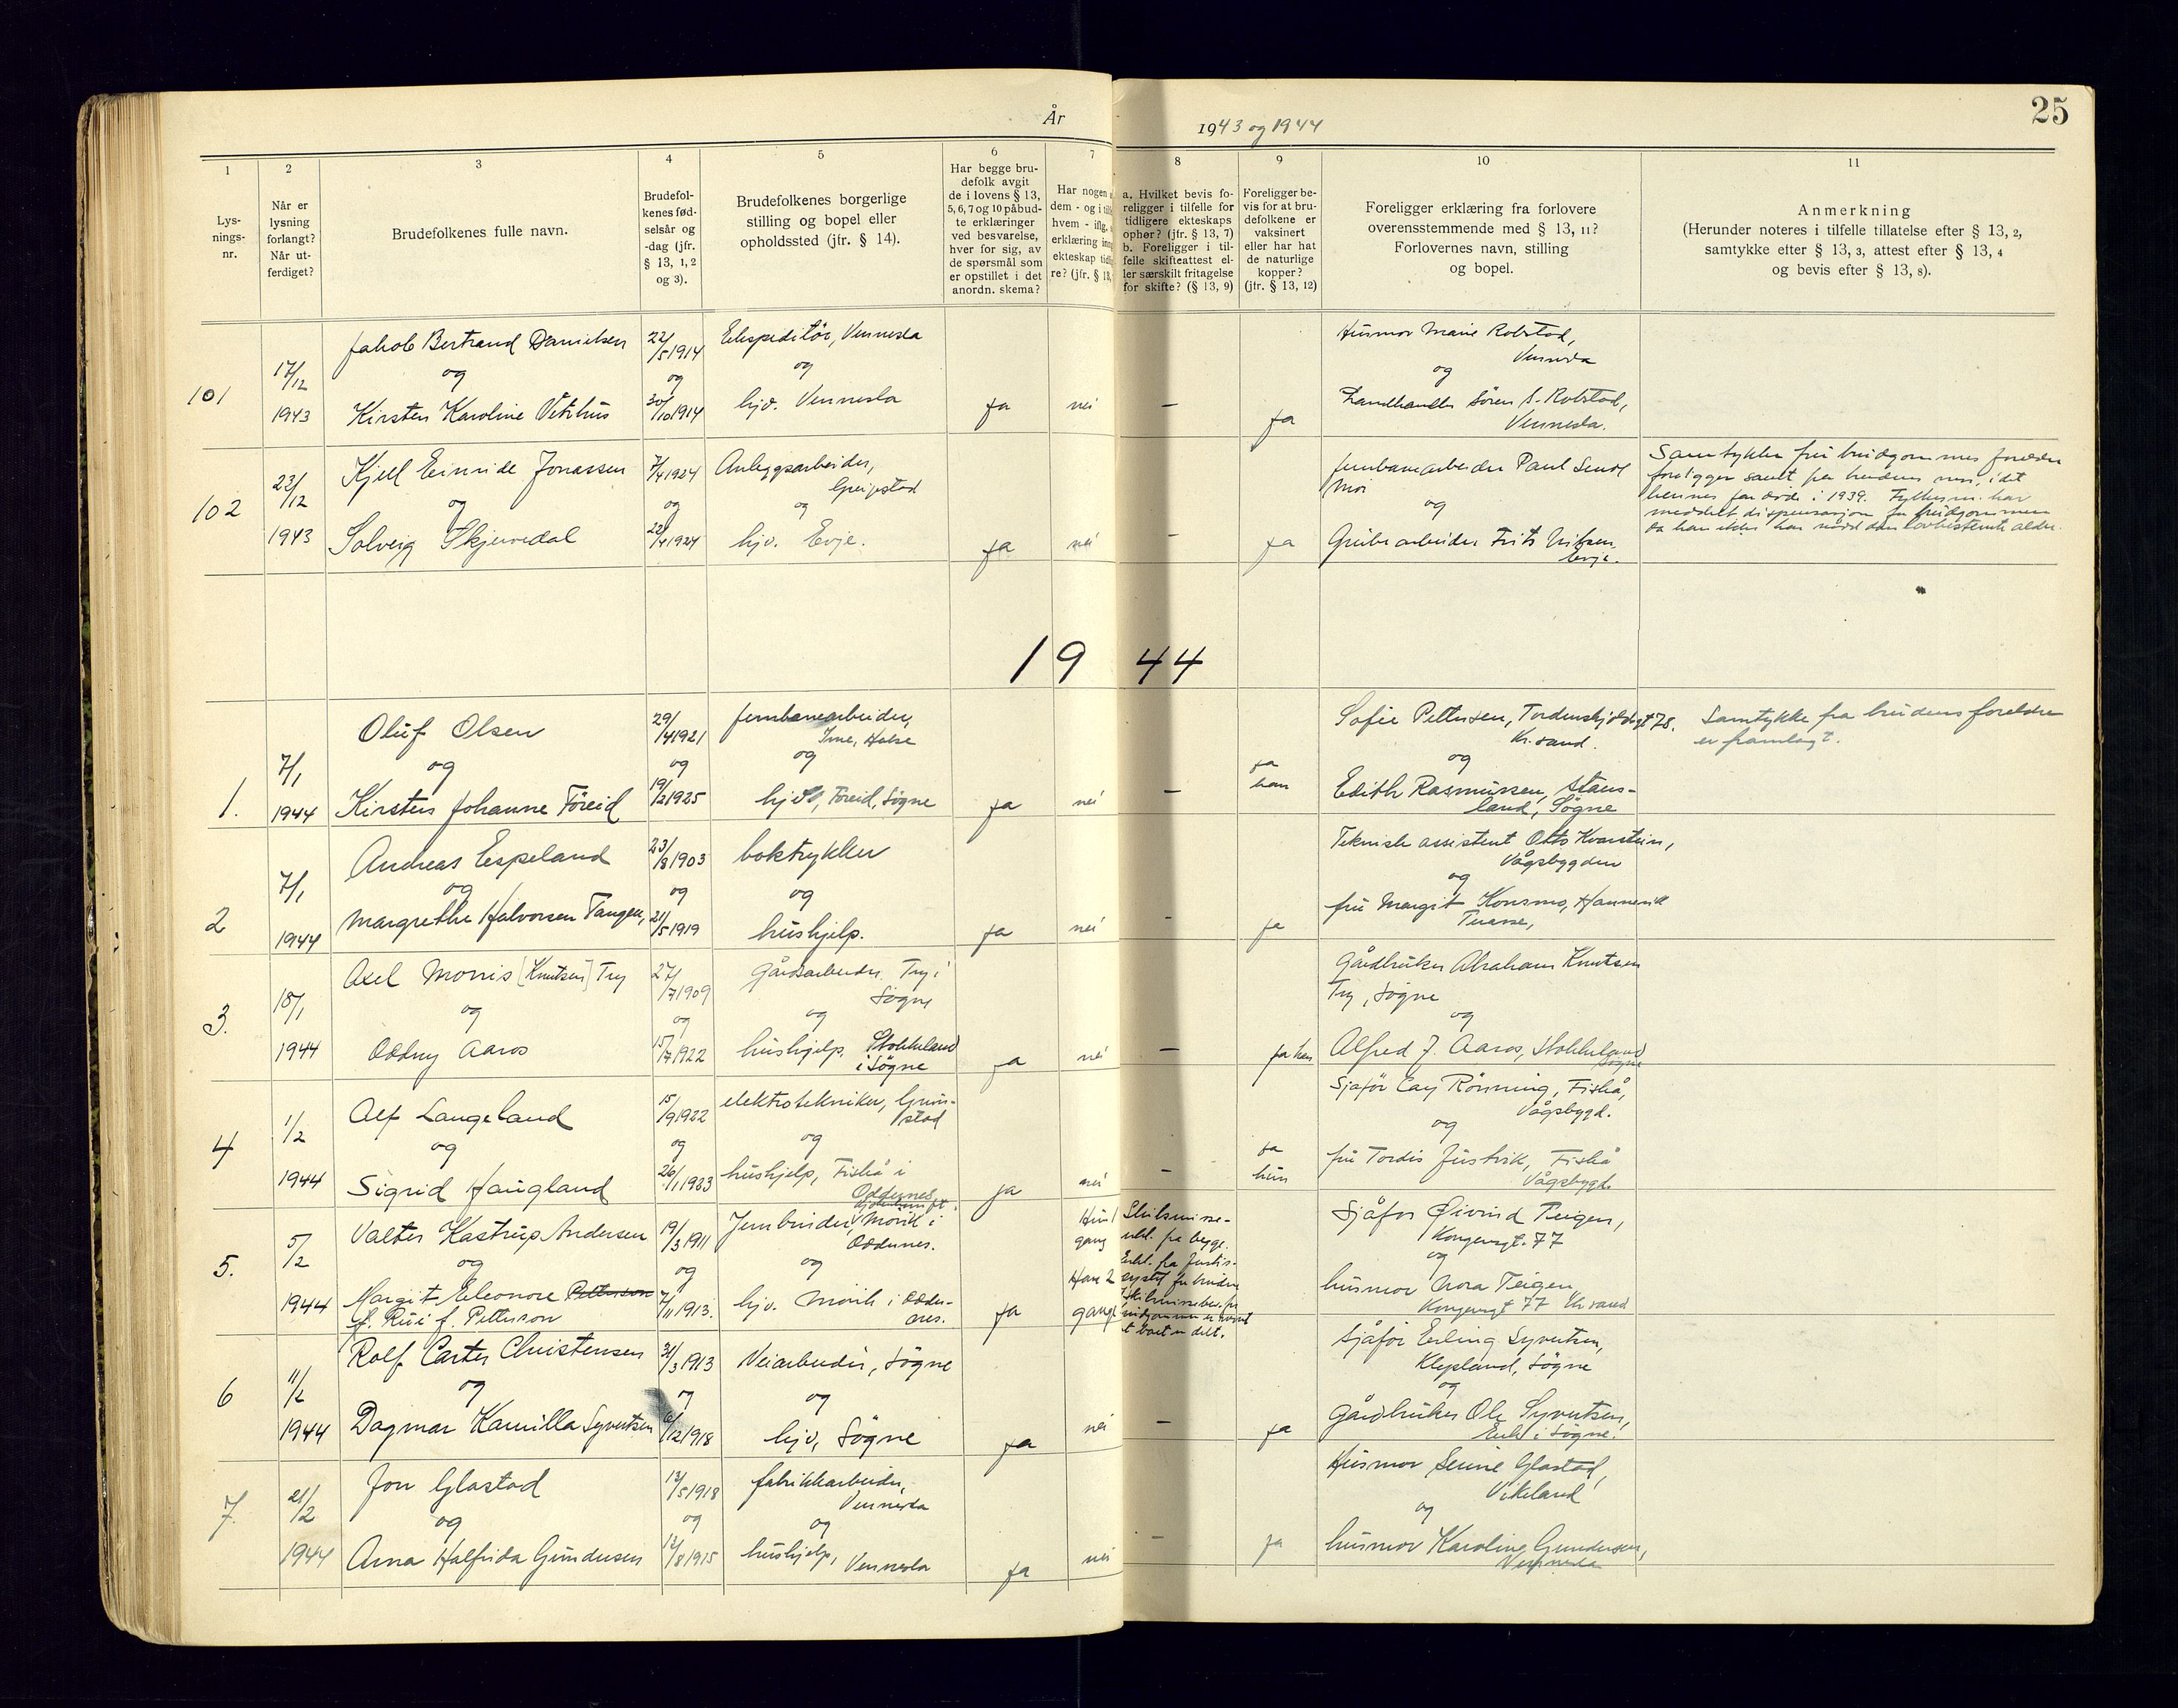 År
1943 og 1944
25
1
Lys-
nings-
nr.
2
Når er
lysning
forlangt?
Når ut-
ferdiget?
3
Brudefolkenes fulle navn.
4
Brudefol-
kenes fød-
selsår og
-dag (jfr.
§ 13, 1, 2
og 3).
5
Brudefolkenes borgerlige
stilling og bopel eller
opholdssted (jfr. § 14).
6
Har begge bru-
defolk avgit
de i lovens § 13,
5, 6, 7 og 10 påbud-
te erklæringer
ved besvarelse,
hver for sig, av
de spørsmål som
er opstillet i det
anordn. skema?
7
Har nogen
dem - og i
hvem - iflg.
erklæring
ekteskap
re? (jfr. § 13,
8
a. Hvilket bevis fo-
religger i tilfelle for
tidligere ekteskaps
ophør? (jfr. § 13, 7)
b. Foreligger i til-
felle skifteattest el-
ler særskilt fritagelse
for skifte? (§ 13, 9)
9
Foreligger be-
vis for at bru-
defolkene er
vaksinert
eller har hat
de naturlige
kopper?
(jfr. § 13, 12)
10
Foreligger erklæring fra forlovere
overensstemmende med § 13, 11?
Forlovernes navn, stilling
og bopel.
11
Anmerkning
(Herunder noteres i tilfelle tillatelse efter § 13, 2,
samtykke efter § 13, 3, attest efter § 13, 4
og bevis efter § 13, 8).
101
17/12
1943
Jakob Bertrand Danielsen
og
Kirsten Karoline Vetrhus
22/5 1914
og
30/10 1914
Ekspeditör, Vennesla
og
hjv. Vennesla
ja
nei
—
ja
Husmor Marie Robstad,
Vennesla
og
Landhandler Sören S. Robstad,
Vennesla.
102
23/12
1943
Kjell Einride Jonassen
og
Solveig Skjerredal
7/4 1924
og
22/4 1924
Anleggsarbeider,
Greipstad
og
hjv. Evje.
ja
nei
-
ja
Jernbanearbeider Paul
Moi
og
Grubearbeider Frits Nilsen,
Evje.
Samtykke fra brudgommens foreldre
foreligger samt fra brudens mor, idet
hennes far döde i 1939. Fylkesm. har
meddelt dispensasjon for brudgommen
da han ikke har nådd den lovbestemte alder.
1944
1.
7/1
1944
Oluf Olsen
og
Kirsten Johanne Töreid
29/4 1921
og
19/2 1925
Jernbanearbeider,
Ime, Halse
og
hjv, Töreid, Sögne
ja
nei
—
ja
han
Sofie Pettersen, Tordenskjoldsgt 78.
Kr.sand.
og
Edith Rasmussen, Staus-
land, Sögne
Samtykke fra brudens foreldre
er framlagt.
2
7/1
1944
Andreas Espeland
og
Margrethe Halvorsen Tangen,
23/8 1903
og
21/5 1919
boktrykker
og
hushjelp.
ja
nei
-
ja
Teknisk assistent Otto Kvarstein,
Vågsbygden
og
fru Margit Konsmo, Hannevik
Terasse,
3.
18/1
1944
Axel Monris [Knutsen] Try
og
Oddny Aaros
27/7 1909
og
15/7 1922
Gårdsarbeider. Try i
Sögne
og
hushjelp, Stokkeland
i Sögne
ja
nei
—
ja han
Gårdbruker Abraham Knutsen
Try, Sögne
og
Alfred J. Aaros, Stokkeland
Sögne
4
1/2
1944
Alf Langeland
og
Sigrid Haugland
15/9 1922
og
26/1 1923
elektrotekniker, Grim-
stad
og
hushjelp, Fiskå i
Oddernes
ja
nei
-
ja
hun
Sjåför Cay Rönning, Fiskå,
Vågsbygd.
og
fru Tordis Justvik, Fiskå
Vågsbygd.
5.
5/2
1944
Valter Kastrup Andersen
og
Margit Eleonore Pettersson
f. Rui f. Petterson
19/3 1911
og
7/11 1913.
Jernbinder, Mövik i
Oddernes.
og
hjv. Mövik i Odder-
nes.
ja
Hun 1
gang
Han 2
ganger
Skilsmisse-
Sjåfør Øivind Teigen,
Kongensgt. 77
og
husmor Nora Teigen
Kongensgt 77 Kr.sand
6
11/2
1944
Rolf Carter Christensen
og
Dagmar Kamilla Syvertsen
31/3 1913
og
6/12 1918
Veiarbeider, Sögne
og
hjv, Sögne
ja
nei
—
ja
Sjåför Erling Syvertsen,
Klepland, Sögne
og
Gårdbruker Ole Syvertsen,
Eik i Sögne.
7.
21/2
1944
Jon Glastad
og
Anna Halfrida Gundersen
12/5 1918
og
12/8 1915
fabrikkarbeider,
Vennesla
og
hushjelp,
Vennesla
ja
nei
-
ja
Husmor Serine Glastad,
Vikeland
og
husmor Karoline Gundersen,
Vennesla